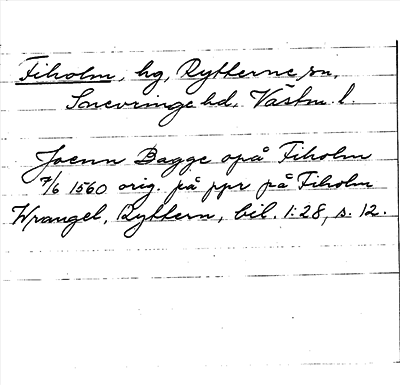 Fiholm, hg, Rytterne sn,
Snevringe hd, Västm. l.
Joenn Bagge opå Fiholm
7/6 1560 orig. på ppr på Fiholm
Wrangel, Ryttern, bil. 1:28, s. 12.